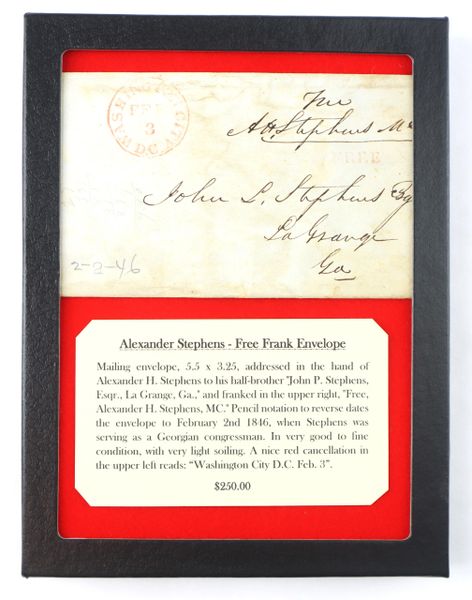 WASHINGTON CITY
FEB
3
D.C.
Free
A H. Stephens M
FREE
John L. Stephens Esq
La Grange
Ga
2-2-46
Alexander Stephens - Free Frank Envelope
Mailing envelope, 5.5 x 3.25, addressed in the hand of
Alexander H. Stephens to his half-brother "John P. Stephens,
Esqr., La Grange, Ga.," and franked in the upper right, "Free,
Alexander H. Stephens, MC." Pencil notation to reverse dates
the envelope to February 2nd 1846, when Stephens was
serving as a Georgian congressman. In very good to fine
condition, with very light soiling. A nice red cancellation in
the upper left reads: “Washington City D.C. Feb. 3”.
$250.00